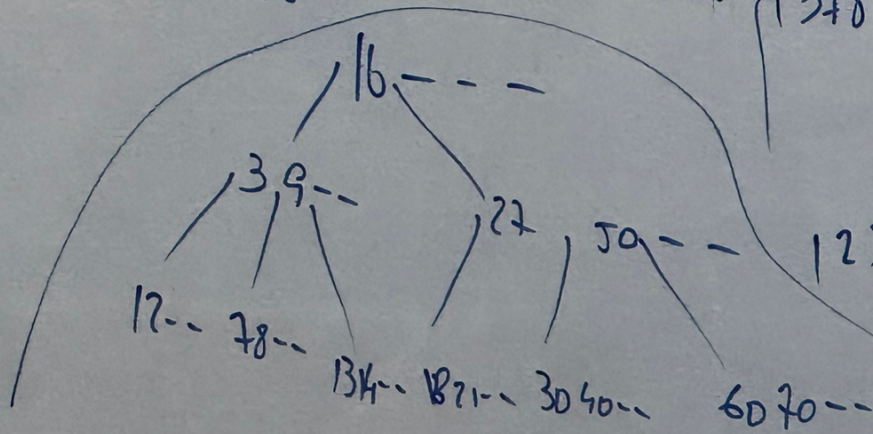 16 - - -
3 9 - -
27 50 - -
12 - - 78 - - 13 14 - - 18 21 - - 30 40 - - 60 70 - -